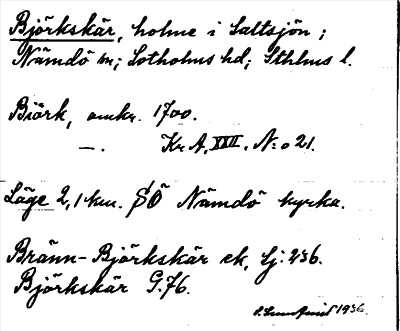 Björkskär, holme i Saltsjön;
Nämdö sn; Sotholms hd; Sthlms l.
Biörk, omkr. 1700.
—. Kr A, XXII, N:o 21.
Läge 2,1 km. SÖ Nämdö kyrka.
Bränn-Björkskär ek, Sj: 236.
Björkskär G.76.
1936.